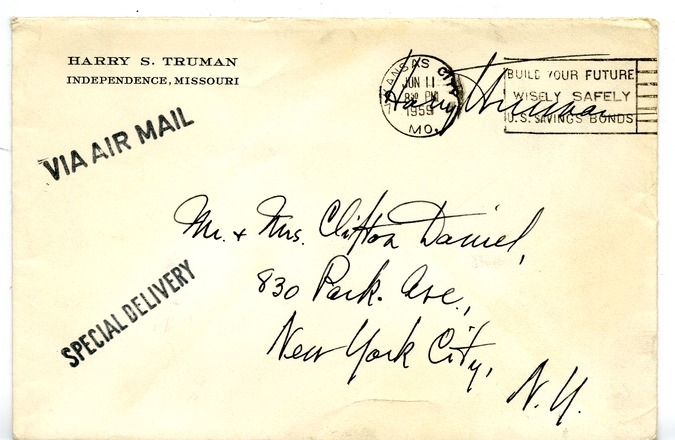 HARRY S. TRUMAN
INDEPENDENCE, MISSOURI
KANSAS CITY
JUN 11
8 30 PM
1959
MO.
BUILD YOUR FUTURE
WISELY SAFELY
U.S. SAVINGS BONDS
Harry Truman
VIA AIR MAIL
Mr. + Mrs. Clifton Daniel,
830 Park. Ave.,
New York City,
N.Y.
SPECIAL DELIVERY